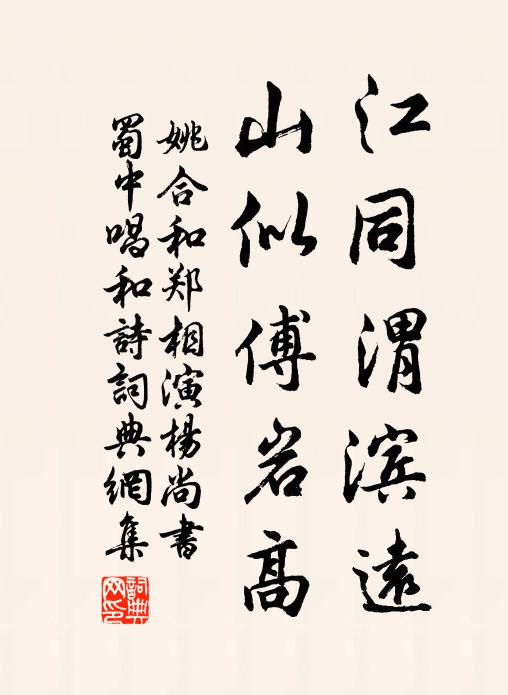 江同渭滨遠
山似傅岩高
姚合和郑相演楊尚書
蜀中唱和詩詞典網集
詞典网印